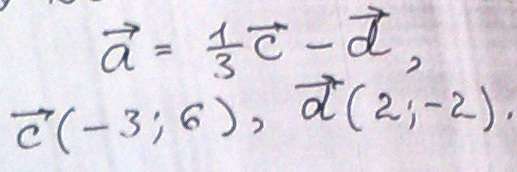 a⃗ = 1/3 c⃗ − d⃗,
c⃗(−3; 6), d⃗(2; −2).